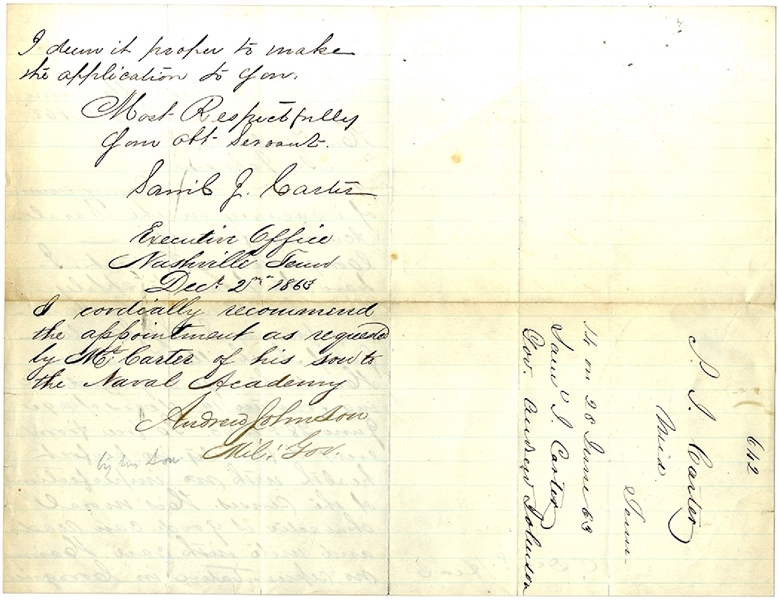 I deem it proper to make
the application to you.
Most Respectfully
Your obt Servant.
Saml J. Carter
Executive Office
Nashville Tenn
Decr 2nd 1863
I cordially recommend
the appointment as requested
by Mr Carter of his son to
the Naval Academy
Andrew Johnson
Mil. Gov.
by his son
642
S. J. Carter
Mid. Tenn
14 on 28 June 63
Saml J. Carter
Gov. Andrew Johnson